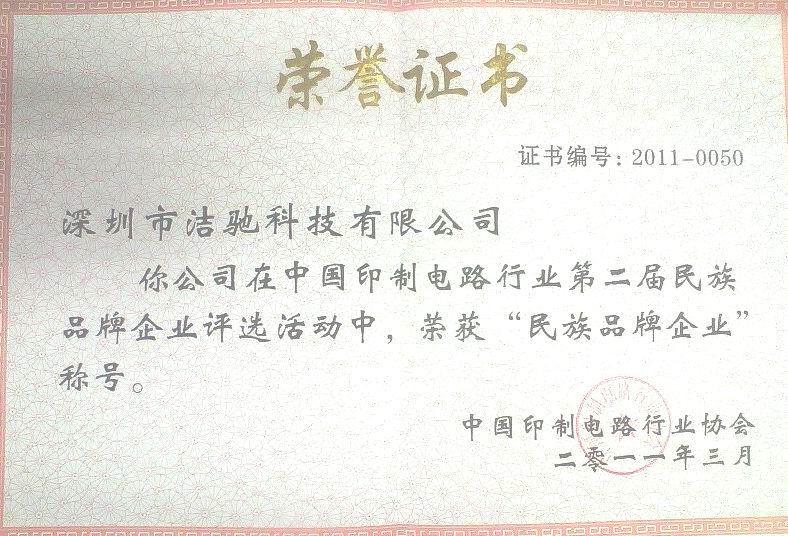 荣誉证书
证书编号：2011-0050
深圳市洁驰科技有限公司
你公司在中国印制电路行业第二届民族
品牌企业评选活动中，荣获“民族品牌企业”
称号。
中国印制电路行业协会
二零一一年三月